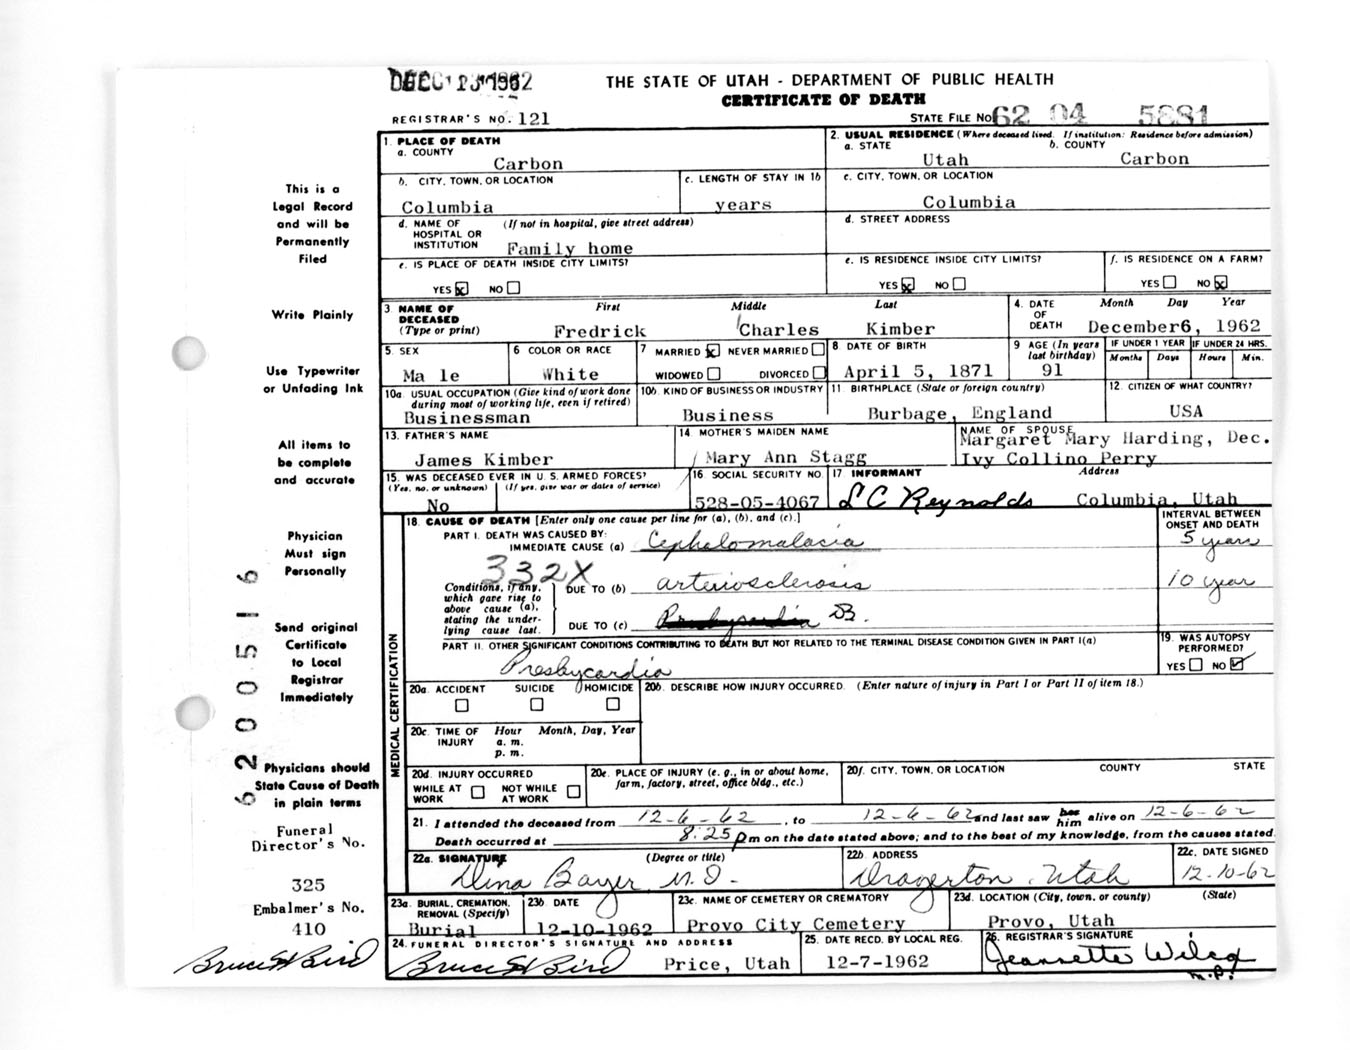 DEC 1962
THE STATE OF UTAH - DEPARTMENT OF PUBLIC HEALTH
CERTIFICATE OF DEATH
REGISTRAR'S NO. 121
STATE FILE NO. 62 04 5881
1. PLACE OF DEATH
a. COUNTY
Carbon
2. USUAL RESIDENCE (Where deceased lived. If institution: Residence before admission)
a. STATE b. COUNTY
Utah Carbon
b. CITY, TOWN, OR LOCATION
Columbia
c. LENGTH OF STAY IN 1b
years
c. CITY, TOWN, OR LOCATION
Columbia
d. NAME OF HOSPITAL OR INSTITUTION (If not in hospital, give street address)
Family home
d. STREET ADDRESS
e. IS PLACE OF DEATH INSIDE CITY LIMITS?
YES x NO
e. IS RESIDENCE INSIDE CITY LIMITS?
YES x NO
f. IS RESIDENCE ON A FARM?
YES NO x
3. NAME OF DECEASED (Type or print)
First Middle Last
Fredrick Charles Kimber
4. DATE OF DEATH Month Day Year
December6, 1962
5. SEX
Ma le
6 COLOR OR RACE
White
7 MARRIED x NEVER MARRIED
WIDOWED DIVORCED
8 DATE OF BIRTH
April 5, 1871
9 AGE (In years last birthday)
91
IF UNDER 1 YEAR IF UNDER 24 HRS.
Months Days Hours Min.
10a. USUAL OCCUPATION (Give kind of work done during most of working life, even if retired)
Businessman
10b. KIND OF BUSINESS OR INDUSTRY
Business
11 BIRTHPLACE (State or foreign country)
Burbage, England
12. CITIZEN OF WHAT COUNTRY?
USA
13. FATHER'S NAME
James Kimber
14 MOTHER'S MAIDEN NAME
Mary Ann Stagg
NAME OF SPOUSE
Margaret Mary Harding, Dec.
Ivy Collino Perry
15. WAS DECEASED EVER IN U. S. ARMED FORCES?
(Yes, no, or unknown) (If yes, give war or dates of service)
No
16 SOCIAL SECURITY NO.
528-05-4067
17 INFORMANT Address
L C Reynolds Columbia, Utah
18. CAUSE OF DEATH [Enter only one cause per line for (a), (b), and (c).]
PART I. DEATH WAS CAUSED BY:
IMMEDIATE CAUSE (a) Cephelomalacia
INTERVAL BETWEEN ONSET AND DEATH
5 years
332X
Conditions, if any, which gave rise to above cause (a), stating the underlying cause last.
DUE TO (b) arteriosclerosis
10 year
DUE TO (c) Presbycardia DB.
PART II. OTHER SIGNIFICANT CONDITIONS CONTRIBUTING TO DEATH BUT NOT RELATED TO THE TERMINAL DISEASE CONDITION GIVEN IN PART I(a)
Presbycardia
19. WAS AUTOPSY PERFORMED?
YES NO
20a. ACCIDENT SUICIDE HOMICIDE
20b. DESCRIBE HOW INJURY OCCURRED. (Enter nature of injury in Part I or Part II of item 18.)
20c. TIME OF INJURY Hour Month, Day, Year
a. m.
p. m.
20d. INJURY OCCURRED
WHILE AT WORK NOT WHILE AT WORK
20e. PLACE OF INJURY (e. g., in or about home, farm, factory, street, office bldg., etc.)
20f. CITY, TOWN, OR LOCATION COUNTY STATE
21. I attended the deceased from 12-6-62, to 12-6-62 and last saw her him alive on 12-6-62
Death occurred at 8:25 pm on the date stated above; and to the best of my knowledge, from the causes stated.
22a. SIGNATURE (Degree or title)
Dina Bayer M.D.
22b ADDRESS
Dragerton Utah
22c. DATE SIGNED
12-10-62
23a. BURIAL, CREMATION, REMOVAL (Specify)
Burial
23b. DATE
12-10-1962
23c. NAME OF CEMETERY OR CREMATORY
Provo City Cemetery
23d. LOCATION (City, town, or county) (State)
Provo, Utah
24. FUNERAL DIRECTOR'S SIGNATURE AND ADDRESS
Bruce H Bird Price, Utah
25. DATE RECD. BY LOCAL REG.
12-7-1962
26. REGISTRAR'S SIGNATURE
Jeannette Wilcox
M.P.
MEDICAL CERTIFICATION
This is a
Legal Record
and will be
Permanently
Filed
Write Plainly
Use Typewriter
or Unfading Ink
All items to
be complete
and accurate
Physician
Must sign
Personally
Send original
Certificate
to Local
Registrar
Immediately
Physicians should
State Cause of Death
in plain terms
Funeral
Director's No.
325
Embalmer's No.
410
Bruce H Bird
6200516